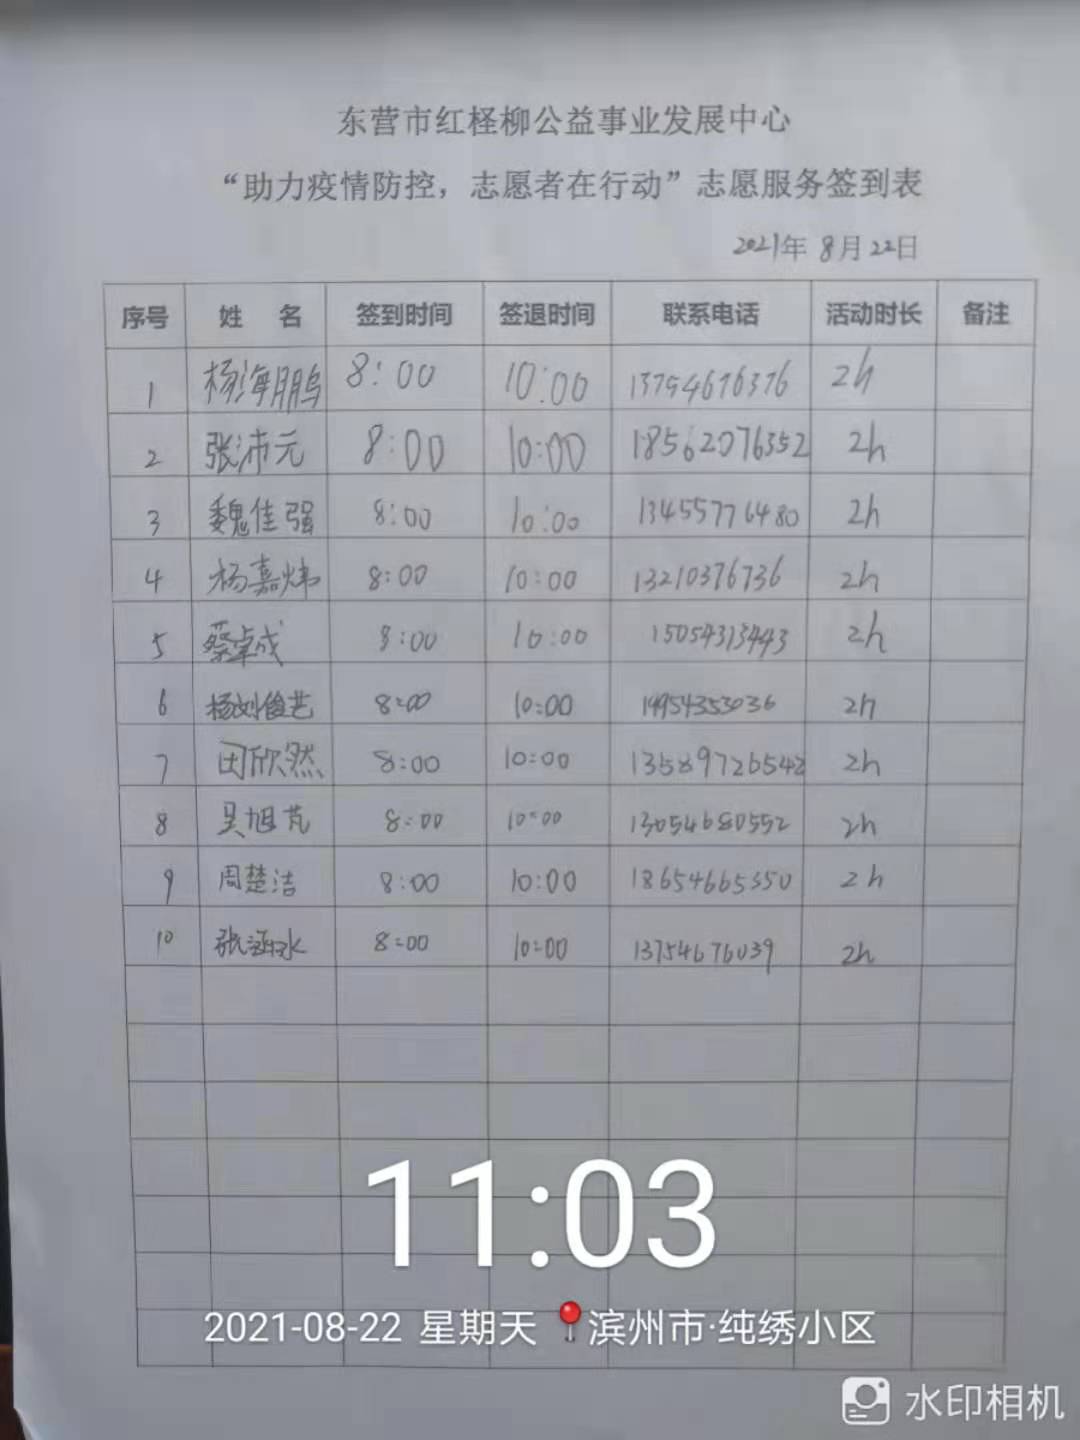 东营市红柽柳公益事业发展中心
“助力疫情防控，志愿者在行动”志愿服务签到表
2021年 8月 22日
序号 姓 名 签到时间 签退时间 联系电话 活动时长 备注
1 杨海鹏 8:00 10:00 13794676376 2h
2 张沛元 8:00 10:00 18562076352 2h
3 魏佳强 8:00 10:00 13455776480 2h
4 杨嘉炜 8:00 10:00 13210376736 2h
5 蔡卓成 8:00 10:00 15054313443 2h
6 杨刘俊艺 8:00 10:00 2h
7 田欣然 8:00 10:00 13589726542 2h
8 吴旭芃 8:00 10:00 13054680552 2h
9 周楚洁 8:00 10:00 18654665350 2h
10 张涵水 8:00 10:00 13754676039 2h
11:03
2021-08-22 星期天 滨州市·纯绣小区
水印相机